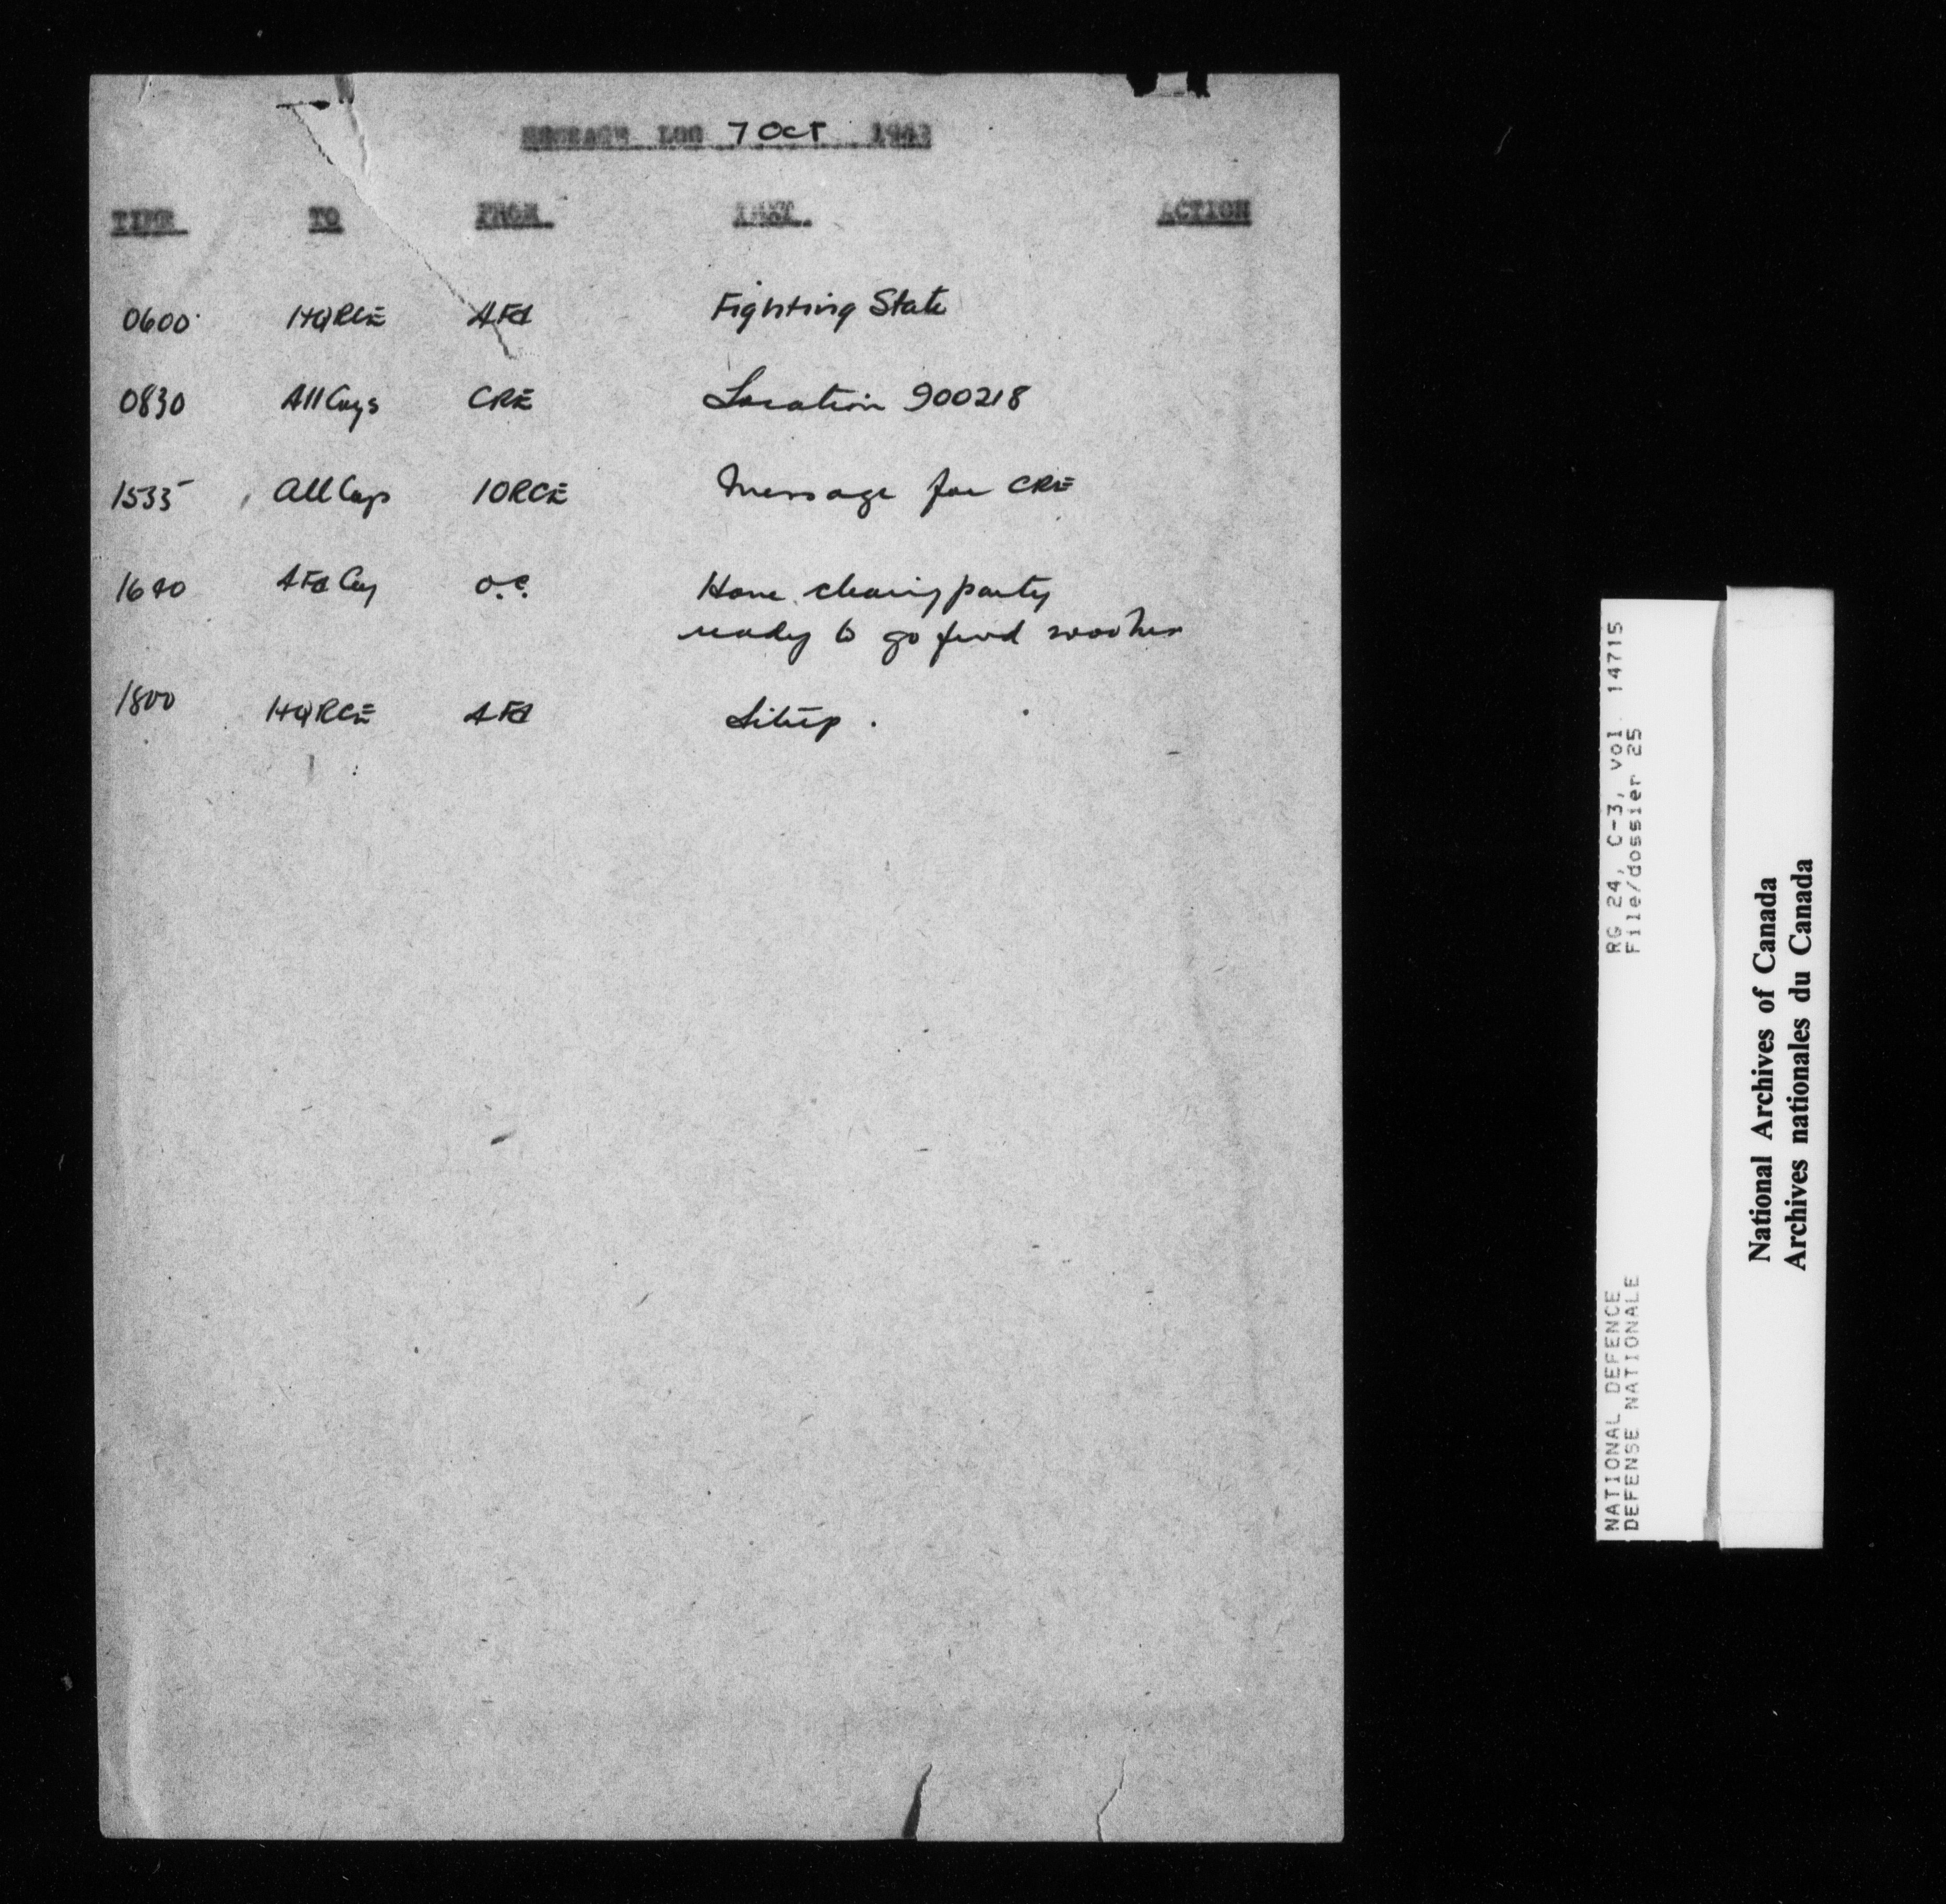 MESSAGE LOG 7 Oct 1943
TIME TO FROM TEXT ACTION
0600 HQRCE 4Fd Fighting State
0830 All Coys CRE Location 900218
1535 All Coys IORCE Message for CRE
1640 4Fd Coy O.C. Have clearing party
ready to go fwd
1800 HQRCE 4Fd Sitrep.
RG 24, C-3, vol. 14715
File/dossier 25
NATIONAL DEFENCE
DEFENSE NATIONALE
National Archives of Canada
Archives nationales du Canada